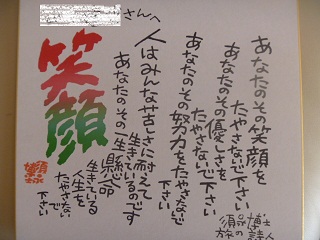 さんへ
笑顔
あなたのその笑顔を
たやさないで下さい
あなたのその優しさを
たやさないで下さい
あなたのその努力をたやさないで
下さい
人はみんな苦しさに耐えて
生きているのです
あなたのその一生懸命
生きている
人生を
たやさないで
下さい